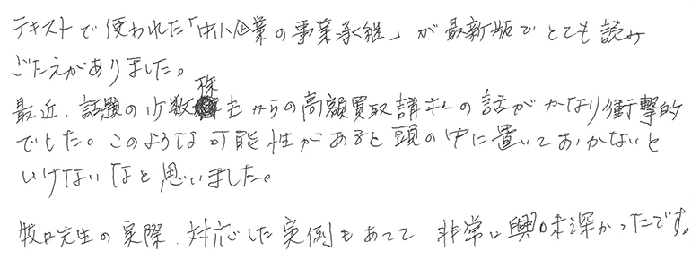 テキストで使われた「中小企業の事業承継」が最新版でとても読み
ごたえがありました。
最近、話題の少数株主からの高額買取請求の話がかなり衝撃的
でした。このような可能性があると頭の中に置いておかないと
いけないなと思いました。
牧口先生の実際、対応した実例もあって非常に興味深かったです。